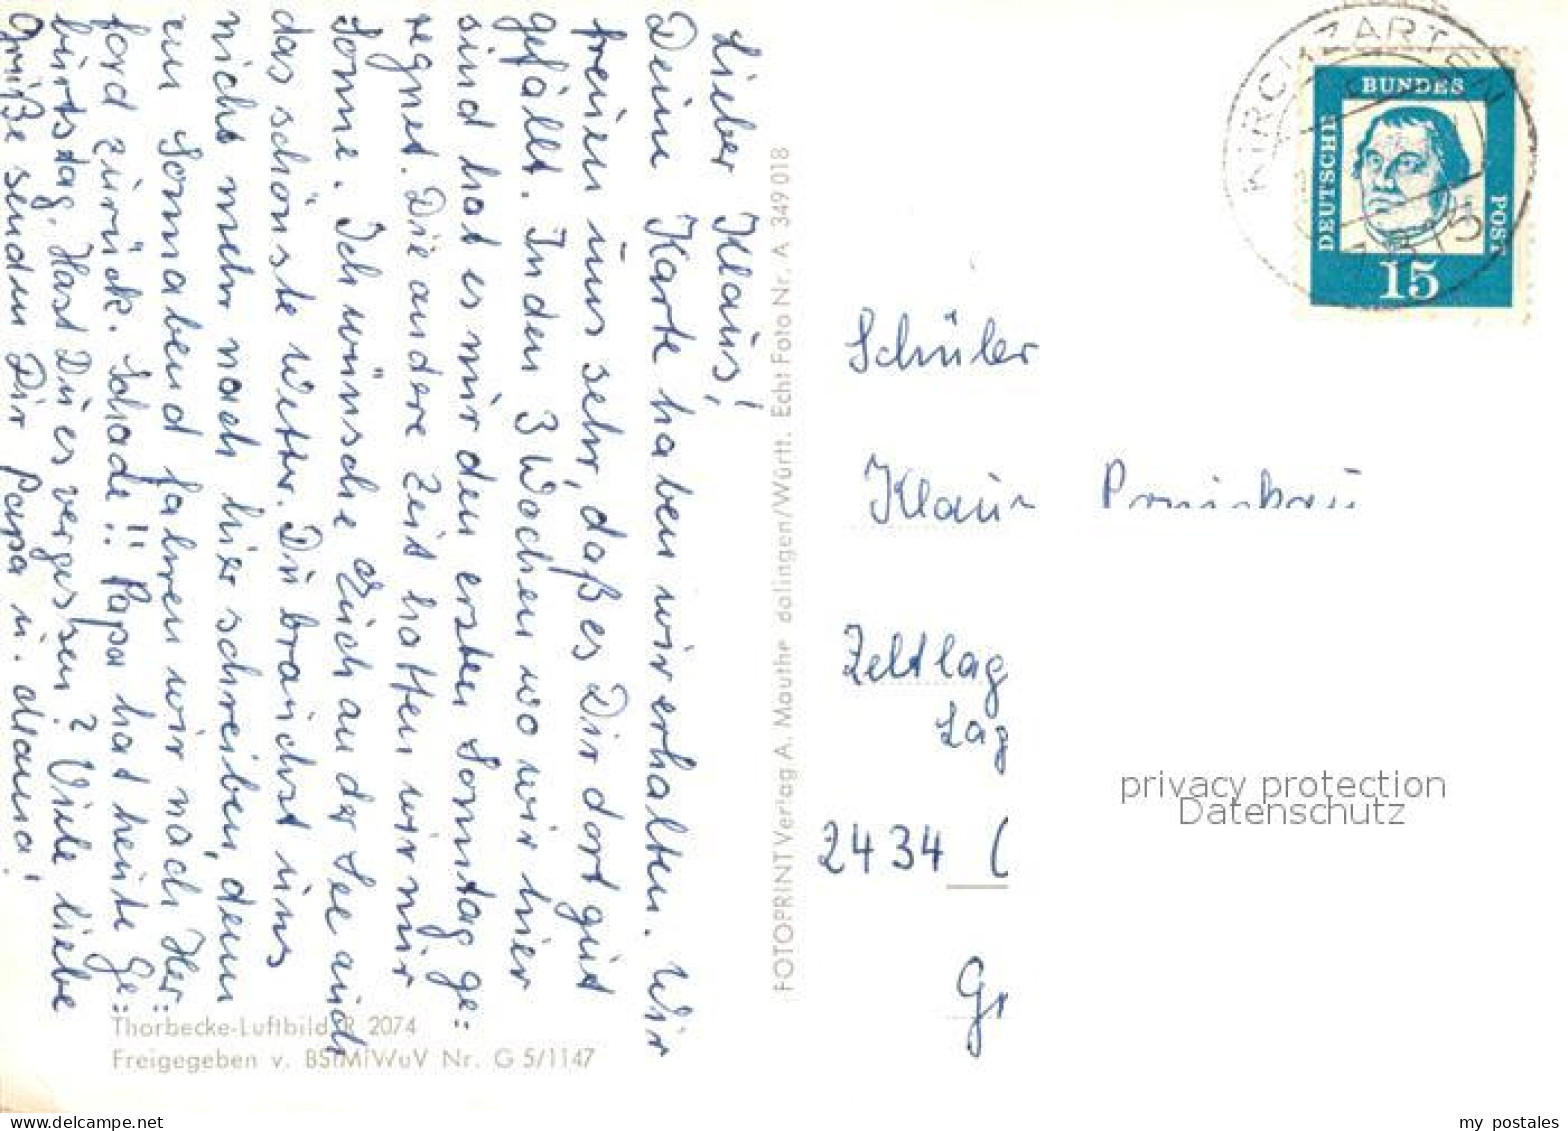 Lieber Klaus!
Deine Karte haben wir erhalten. Wir
freuen uns sehr, daß es Dir dort gut
gefällt. In den 3 Wochen wo wir hier
sind hat es nur den ersten Sonntag ge=
regnet. Die andere Zeit hatten wir nur
Sonne. Ich wünsche Euch an der See auch
das schönste Wetter. Du brauchst uns
nicht mehr nach hier schreiben, denn
am Sonnabend fahren wir nach Her=
ford zurück. Schade!! Papa hat heute Ge=
burtstag. Hast Du es vergessen? Viele liebe
Grüße senden Dir Papa u. Mama!
Thorbecke-Luftbild R 2074
Freigegeben v. BStMiWuV Nr. G 5/1147
FOTOPRINT Verlag A. Mauthe dalingen/Württ. Echt Foto Nr. A 349 018
KIRCHZARTEN
DEUTSCHE
BUNDES
POST
15
Schüler
Klaus
Zeltlag
Lag
2434 (
Gr
privacy protection
Datenschutz
my postales